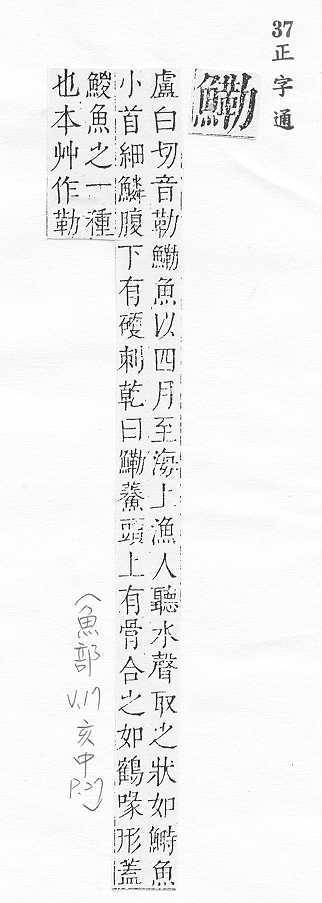 37
正字通
鰳
盧白切音勒鰳魚以四月至海上漁人聽水聲取之狀如鰣魚
小首細鱗腹下有硬刺乾曰鰳鯗頭上有骨合之如鶴喙形蓋
鯼魚之一種
也本艸作勒
(魚部
V.17
亥中
P.27)